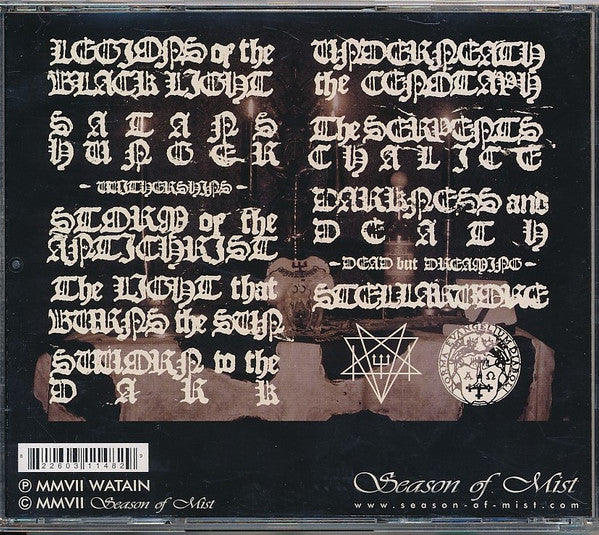 LEGIONS of the
BLACK LIGHT
SATANS
HUNGER
- WITHERSHINS -
STORM of the
ANTICHRIST
The LIGHT that
BURNS the SUN
SWORN to the
DARK
UNDERNEATH
the CENOTAPH
The SERPENTS
CHALICE
DARKNESS and
DEATH
- DEAD but DREAMING -
STELLARVORE
A Ω
8 22603 11482 9
Ⓟ MMVII WATAIN
© MMVII Season of Mist
Season of Mist
www.season-of-mist.com